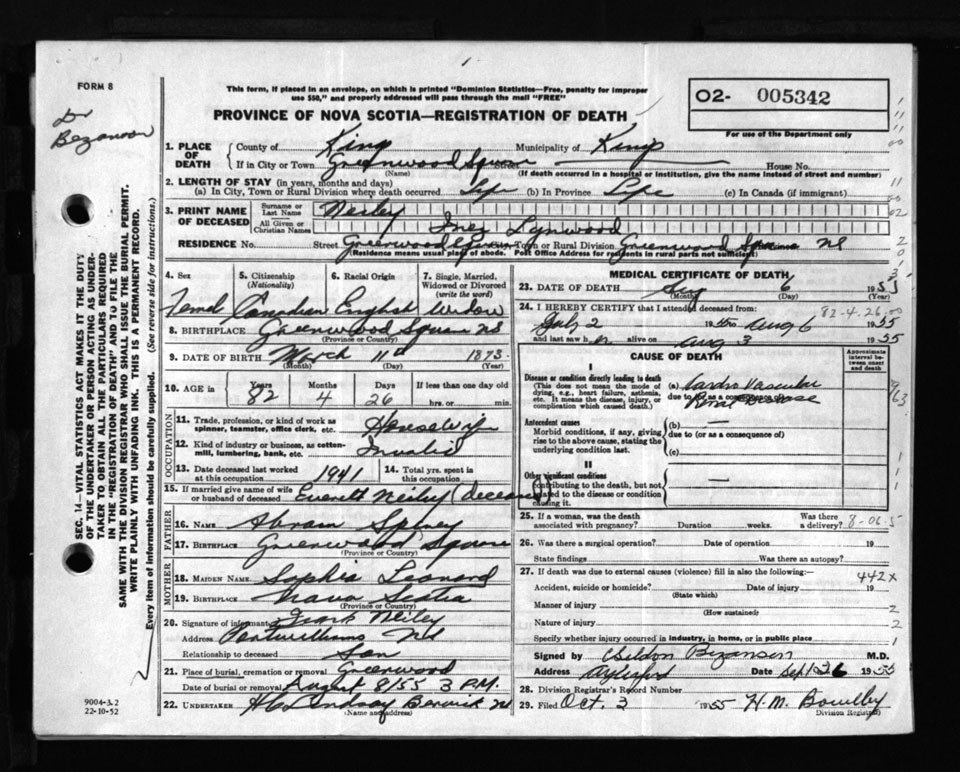 FORM 8
This form, if placed in an envelope, on which is printed "Dominion Statistics—Free, penalty for improper
use $50," and properly addressed will pass through the mail "FREE"
O2- 005342
For use of the Department only
PROVINCE OF NOVA SCOTIA—REGISTRATION OF DEATH
Dr
Bezanson
1. PLACE OF DEATH County of Kings Municipality of Kings
If in City or Town Greenwood Square Street House No.
(Name) (If death occurred in a hospital or institution, give the name instead of street and number)
2. LENGTH OF STAY (in years, months and days)
(a) In City, Town or Rural Division where death occurred Life (b) In Province Life (c) In Canada (if immigrant)
3. PRINT NAME OF DECEASED Surname or Last Name Neiley
All Given or Christian Names Inez Lynwood
RESIDENCE No. Street Greenwood Square City, Town or Rural Division Greenwood Square NS
(Residence means usual place of abode. Post Office Address for regents in rural parts not sufficient)
4. Sex 5. Citizenship (Nationality) 6. Racial Origin 7. Single, Married, Widowed or Divorced (write the word)
Femal Canadian English Widow
8. BIRTHPLACE Greenwood Square NS
(Province or Country)
9. DATE OF BIRTH March 11th 1873
(Month) (Day) (Year)
10. AGE in Years Months Days If less than one day old
82 4 26 hrs. or min.
OCCUPATION
11. Trade, profession, or kind of work as spinner, teamster, office clerk, etc. Housewife
12. Kind of industry or business, as cotton-mill, lumbering, bank, etc. Invalid
13. Date deceased last worked at this occupation 1941 14. Total yrs. spent in this occupation
15. If married give name of wife or husband of deceased Everett Neiley (deceased)
FATHER
16. NAME Abram Spiney
17. BIRTHPLACE Greenwood Square
(Province or Country)
MOTHER
18. MAIDEN NAME Sophia Leonard
19. BIRTHPLACE Nova Scotia
(Province or Country)
20. Signature of informant Frank Neiley
Address Portwilliams NS
Relationship to deceased Son
21. Place of burial, cremation or removal Greenwood
Date of burial or removal August 8/55 3 P.M.
22. UNDERTAKER Lindsay Berwick NS
(Name and Address)
MEDICAL CERTIFICATE OF DEATH
23. DATE OF DEATH Aug 6 1955
(Month) (Day) (Year)
82-4-26
24. I HEREBY CERTIFY that I attended deceased from:
July 2 1955 to Aug 6 1955
and last saw h er alive on Aug 3 1955
CAUSE OF DEATH
Approximate interval between onset and death
I
Disease or condition directly leading to death (This does not mean the mode of dying, e.g., heart failure, asthenia, etc. It means the disease, injury, or complication which caused death.)
(a) Cardio Vascular
due to (or as a consequence of)
Renal Disease
Antecedent causes
Morbid conditions, if any, giving rise to the above cause, stating the underlying condition last.
(b) —
due to (or as a consequence of)
(c)
II
Other significant conditions contributing to the death, but not related to the disease or condition causing it. —
25. If a woman, was the death associated with pregnancy? Duration weeks. Was there a delivery?
8-06-5
26. Was there a surgical operation? Date of operation 19
State findings Was there an autopsy?
27. If death was due to external causes (violence) fill in also the following:
442x
Accident, suicide or homicide? Date of injury 19
(State which)
Manner of injury
(How sustained)
Nature of injury
Specify whether injury occurred in industry, in home, or in public place
Signed by Weldon Bezanson M.D.
Address Aylesford Date Sept 26 1955
28. Division Registrar's Record Number
29. Filed Oct. 3 1955 H. M. Bowlby
Division Registrar
SEC. 14—VITAL STATISTICS ACT MAKES IT THE DUTY
OF THE UNDERTAKER OR PERSON ACTING AS UNDER-
TAKER TO OBTAIN ALL THE PARTICULARS REQUIRED
IN THE "REGISTRATION OF DEATH" AND TO FILE THE
SAME WITH THE DIVISION REGISTRAR WHO SHALL ISSUE THE BURIAL PERMIT.
WRITE PLAINLY WITH UNFADING INK. THIS IS A PERMANENT RECORD.
Every item of information should be carefully supplied. (See reverse side for instructions.)
9004-3.2
22-10-52